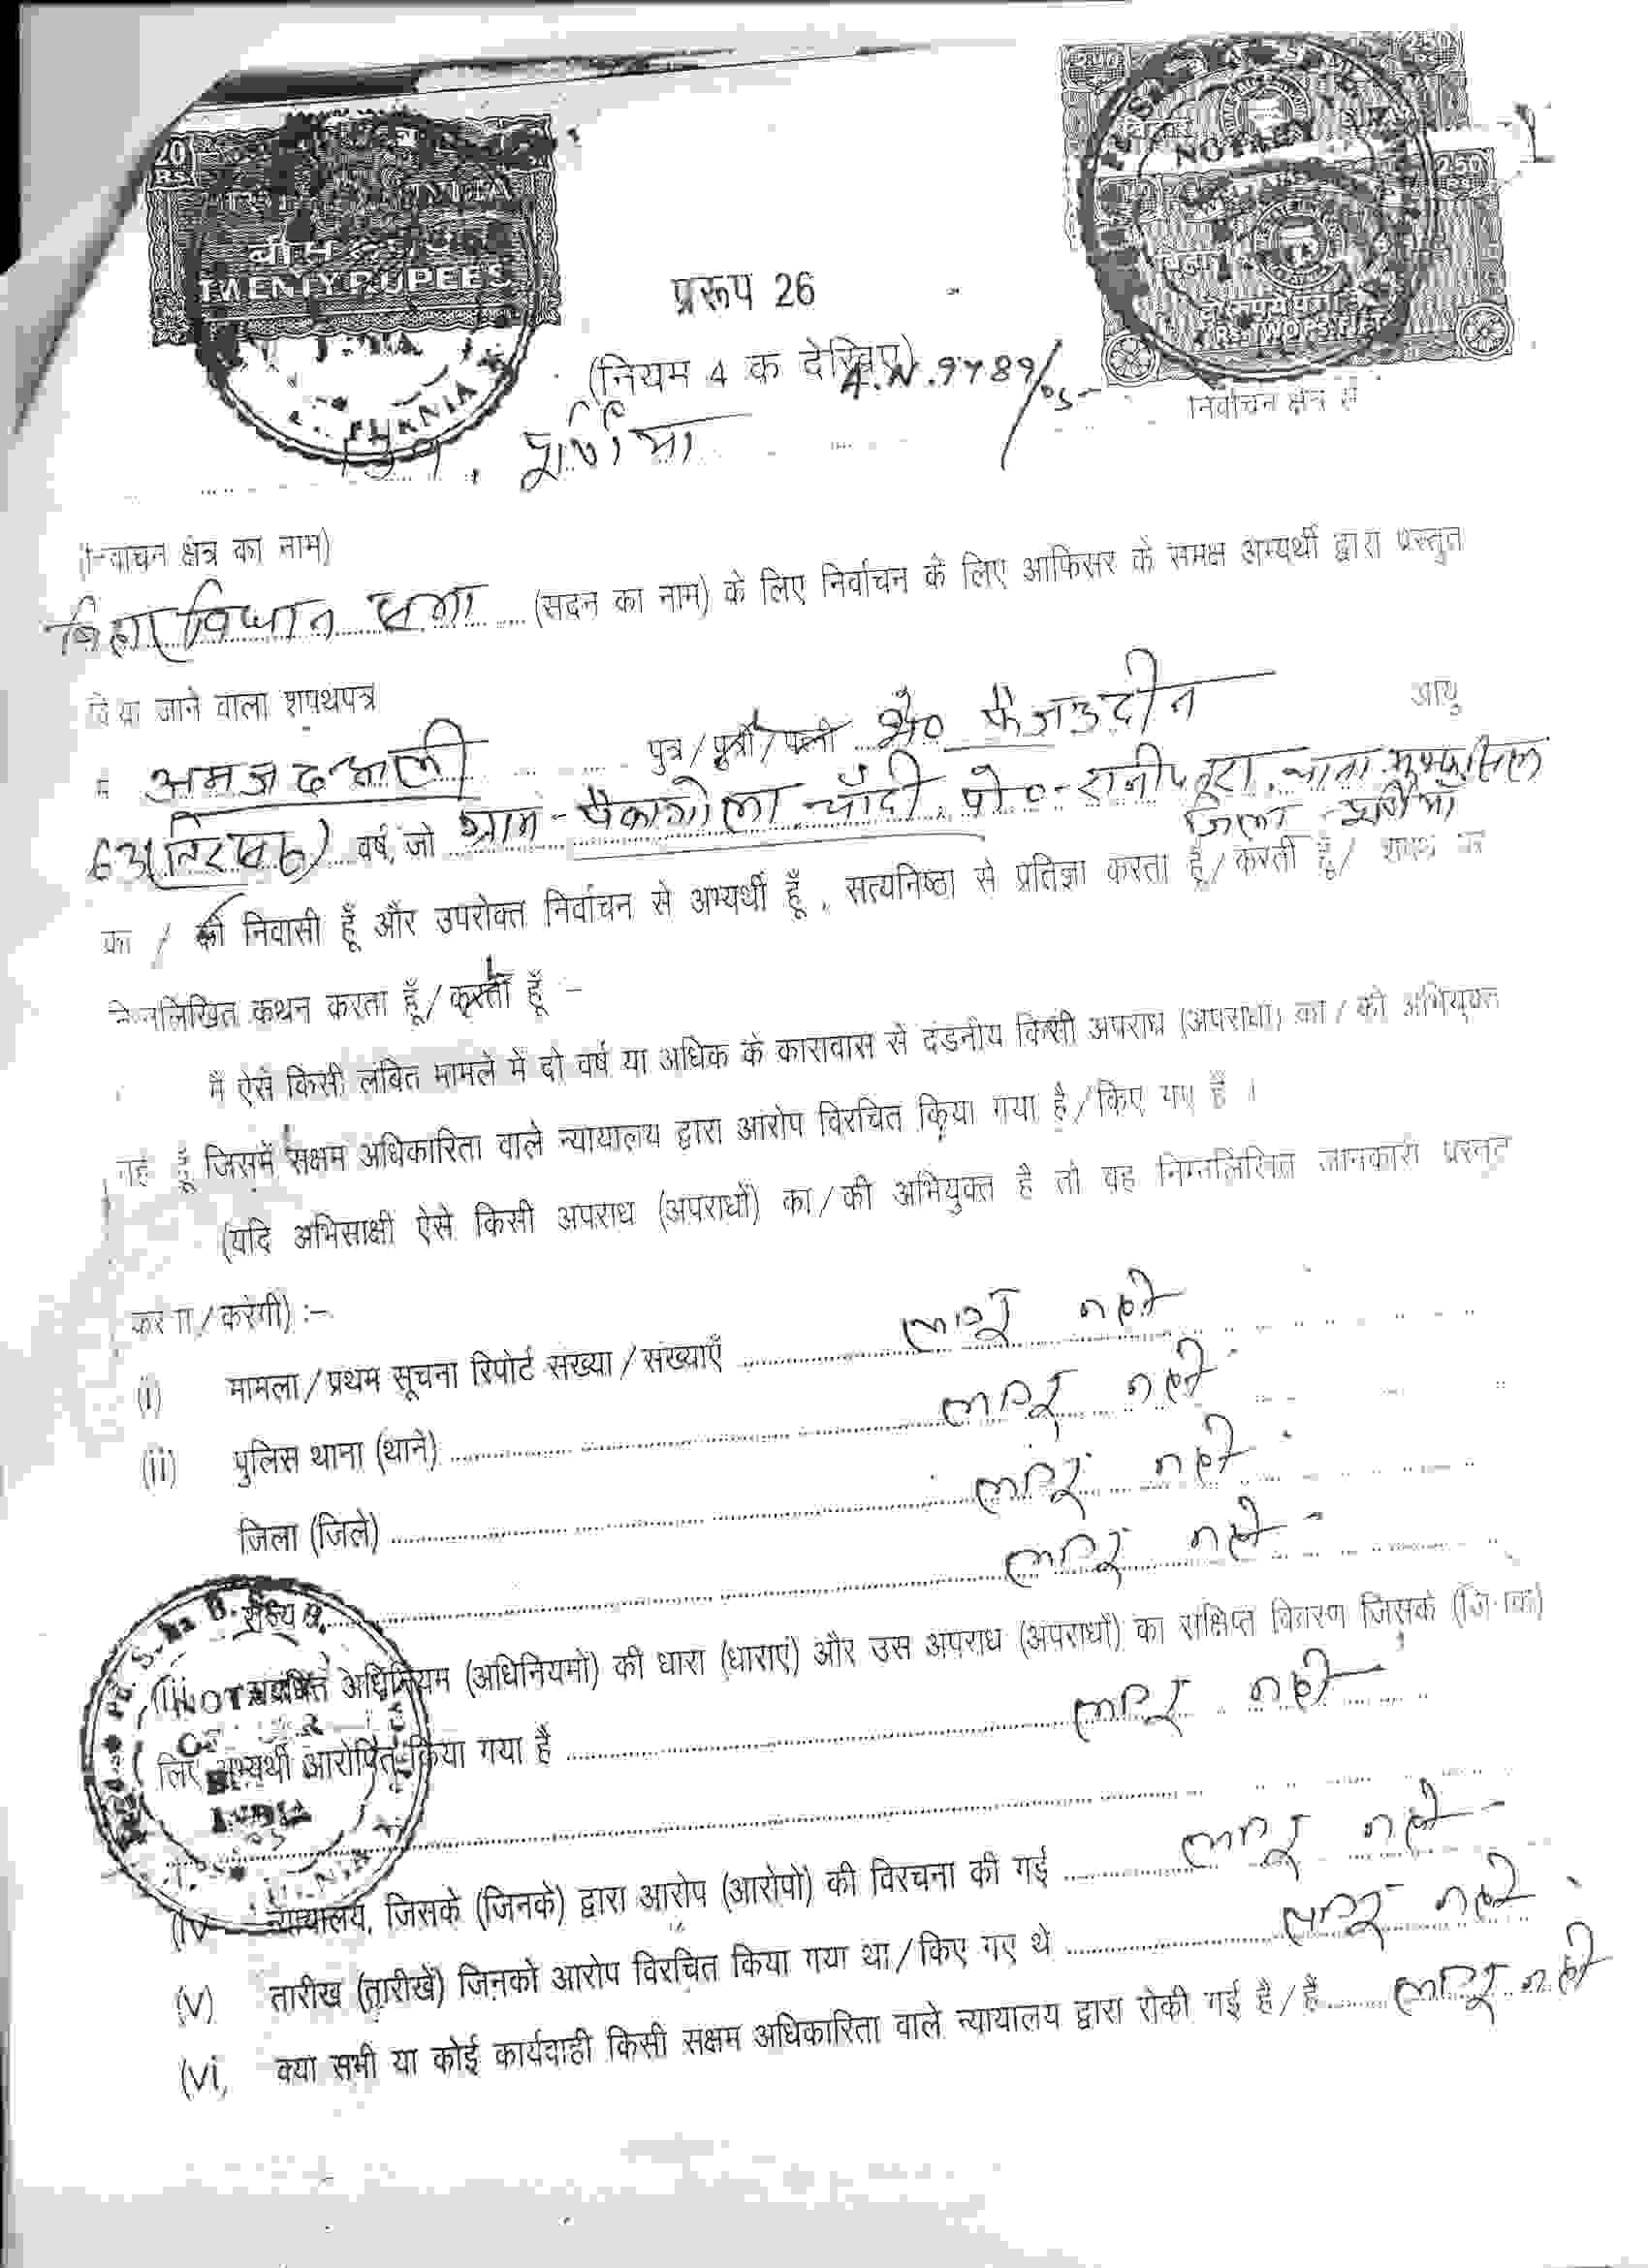 20
RS.
INDIA
बीस
TWENTY RUPEES
PURNIA
NOTARY
250
प्ररूप 26
(नियम 4 क देखिए)
निर्वाचन क्षेत्र से
पूर्णिया
(निर्वाचन क्षेत्र का नाम)
बिहार विधान सभा (सदन का नाम) के लिए निर्वाचन के लिए आफिसर के समक्ष अभ्यर्थी द्वारा प्रस्तुत
किया जाने वाला शपथपत्र
अमजद अली पुत्र/पुत्री/पत्नी फैजउद्दीन आयु
63(तिरसठ) वर्ष, जो ग्राम- चाँदी, पो०-रानीपतरा, थाना-मुफ्फसिल
जिला-पूर्णियाँ
का / की निवासी हूँ और उपरोक्त निर्वाचन से अभ्यर्थी हूँ, सत्यनिष्ठा से प्रतिज्ञा करता हूँ/करती हूँ/ शपथ पर
निम्नलिखित कथन करता हूँ/करती हूँ :-
मैं ऐसे किसी लंबित मामले में दो वर्ष या अधिक के कारावास से दंडनीय किसी अपराध (अपराधों) का/की अभियुक्त
नहीं हूँ जिसमें सक्षम अधिकारिता वाले न्यायालय द्वारा आरोप विरचित किया गया है/किए गए हैं ।
(यदि अभिसाक्षी ऐसे किसी अपराध (अपराधों) का/की अभियुक्त है तो वह निम्नलिखित जानकारी प्रस्तुत
करेगा/करेगी) :-
(i) मामला/प्रथम सूचना रिपोर्ट संख्या/संख्याएँ लागू नहीं
(ii) पुलिस थाना (थाने) लागू नहीं
जिला (जिले) लागू नहीं
राज्य लागू नहीं
संबंधित अधिनियम (अधिनियमों) की धारा (धाराएं) और उस अपराध (अपराधों) का संक्षिप्त विवरण जिसके (जिनके)
लिए अभ्यर्थी आरोपित किया गया है लागू नहीं
(iv न्यायालय, जिसके (जिनके) द्वारा आरोप (आरोपों) की विरचना की गई लागू नहीं
(v) तारीख (तारीखें) जिनको आरोप विरचित किया गया था/किए गए थे लागू नहीं
(vi, क्या सभी या कोई कार्यवाही किसी सक्षम अधिकारिता वाले न्यायालय द्वारा रोकी गई है/हैं लागू नहीं